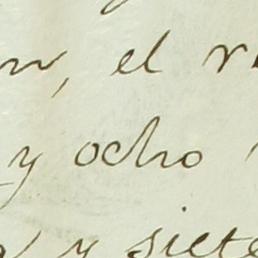 el
y ocho
y siete